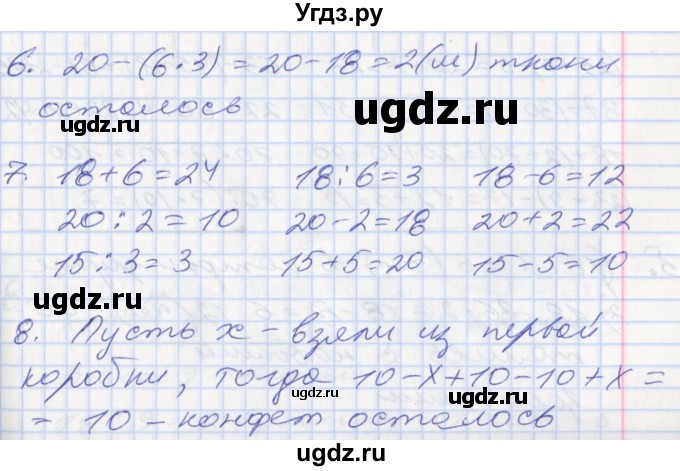 Угдз.ру
6. 20-(6·3)=20-18=2(м) ткани
осталось
ugdz.ru
ugdz.ru
7. 18+6=24 18:6=3 18-6=12
20:2=10 20-2=18 20+2=22
15:3=3 15+5=20 15-5=10
ugdz.ru
ugdz.ru
8. Пусть х - взяли из первой
коробки, тогда 10-х+10-10+х=
= 10 - конфет осталось
ugdz.ru
ugdz.ru